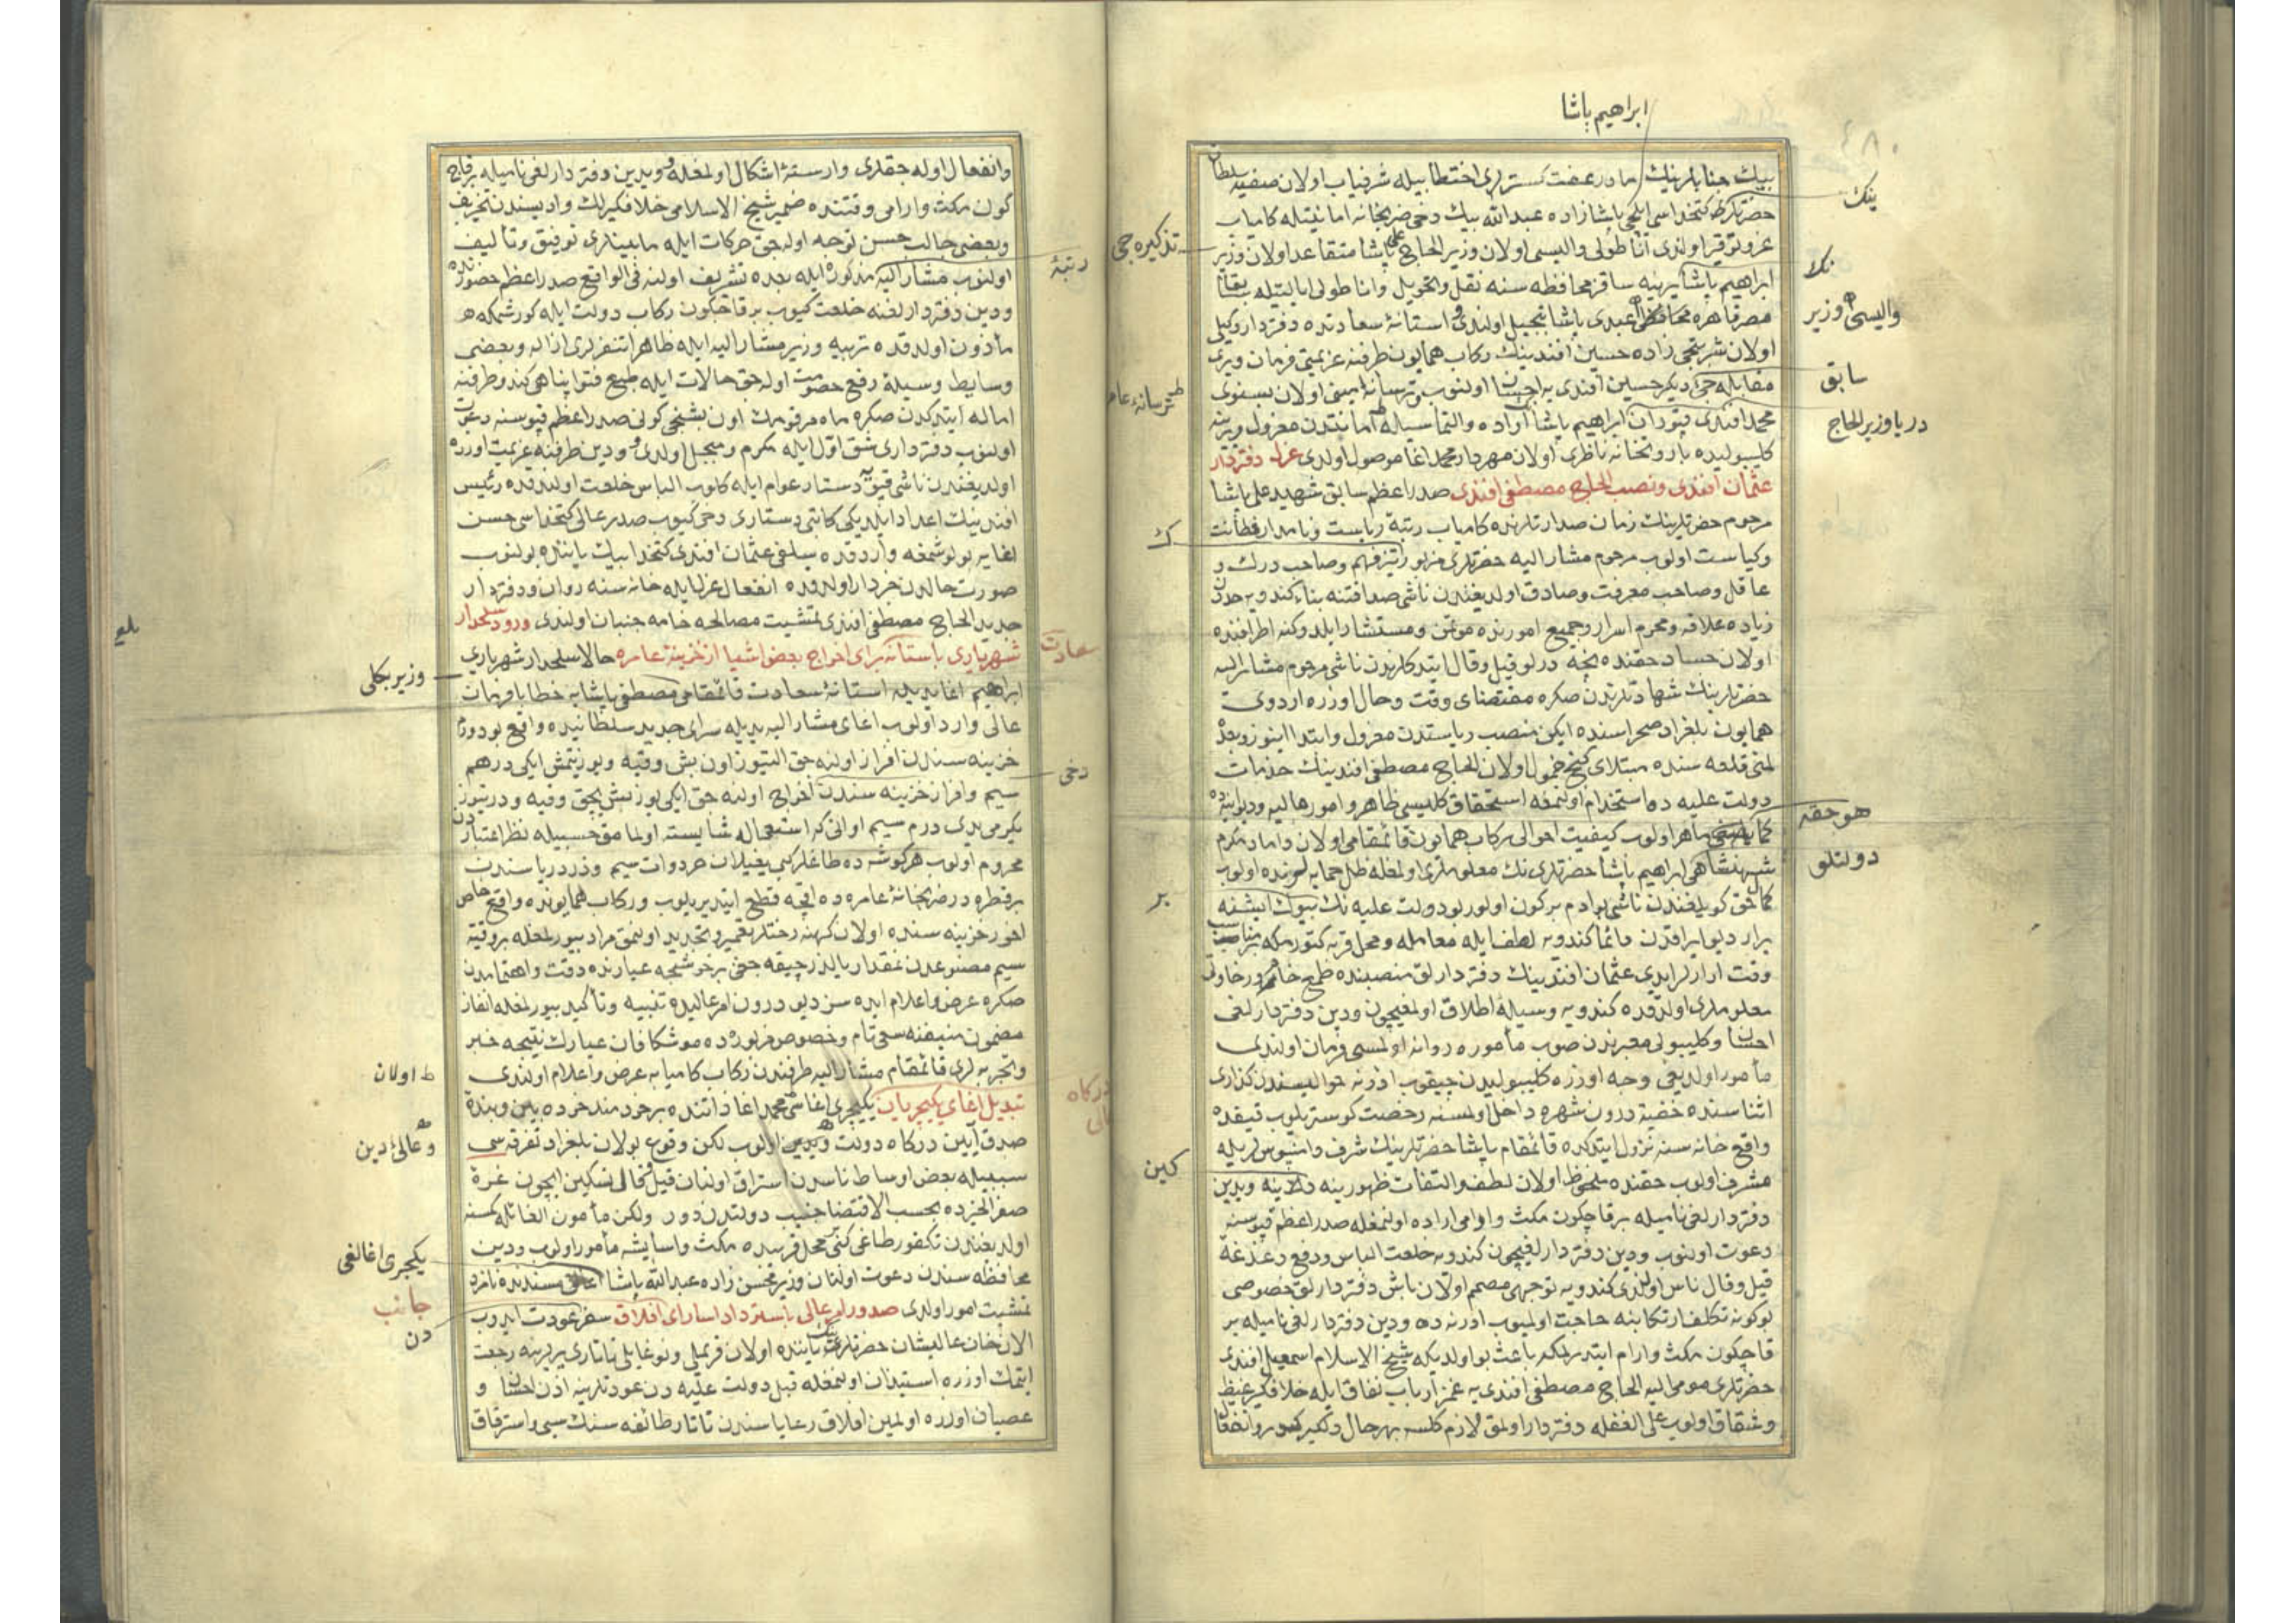 ابراهيم پاشا
٤٨٠
بيك جنابلرينك مادر عفت كسترلرى اختطابيله شرفياب اولان صفيه سلطان
حضرتلرى كتخداسى ايلچى پاشازاده عبدالله بيك دخى ضربخانه امانتيله كامياب
عز و توقير اولندى اناطولى واليسى اولان وزير الحاج على پاشا متقاعد اولان وزير
ابراهيم پاشا يرينه ساقز محافظه سنه نقل وتحويل واناطولى ايالتيله سابقا
مصر قاهره محافظى عبدى پاشا تبجيل اولندى واستانۀ سعادتده دفتردار وكيلى
اولان شربتجى زاده حسين افندينك ركاب همايون طرفنه عزيمتى فرمان ويرى
مقابله جى ديكر حسين افندى يه احسان اولنوب وترسانه امينى اولان بسنوى
محمد افندى قپودان ابراهيم پاشا اراده والتماسيله امانتدن معزول ويرينه
كليبوليده باروتخانه ناظرى اولان مهردار محمد اغا موصول اولدى عزل دفتردار
عثمان افندى ونصب الحاج مصطفى افندى صدر اعظم سابق شهيد على پاشا
مرحوم حضرتلرينك زمان صدارتلرنده كامياب رتبۀ رياست وبامدار فطانت
وكياست اولوب مرحوم مشار اليه حضرتلرى مزبور تيزفهم وصاحب درك و
عاقل وصاحب معرفت وصادق اولديغندن ناشى صداقتنه بناء كندويه حددن
زياده علاقه ومحرم اسرار وجميع امورنده مؤتمن ومستشار ايلدوكنه اطرافنده
اولان حساد حقنده نيجه درلو قيل وقال ايتدكلرندن ناشى مرحوم مشار اليه
حضرتلرينك شهادتلرندن صكره مقتضاى وقت وحال اوزره اردوى
همايون بلغراد صحراسنده ايكن منصب رياستدن معزول وابتدا اينوز وبعده
لمنى قلعه سنده مبتلاى كنج خمول اولان الحاج مصطفى افندينك خدمات
دولت عليه ده استخدام اولنمغه استحقاق كليسى ظاهر وامور ماليه وديوانيه ده
ماهر اولوب كيفيت احوالى ركاب همايون قائمقامى اولان داماد مكرم
شهنشاهى ابراهيم پاشا حضرتلرى نك معلوملرى اولمغله ظل حمايه لرنده اولوب
ناشى بو ادم بر كون اولور بو دولت عليه نك بيوك ايشنه
يرار ديو ايراقدن دائما كندويه لطف ايله معامله ومحل قربه كتورمكه بر مناسب
وقت ارارلر ايدى عثمان افندينك دفتردارلق منصبنده
معلوملرى اولدقده كندويه وسيلۀ اطلاق اولمغيچون ودين دفتردارلغى
احسان وكليبولى معبرندن صوب مأموره روانه اولمسى فرمان اولندى
مأمور اولديغى وجه اوزره كليبوليدن چيقوب ادرنه حواليسندن كذارى
اثناسنده خفية درون شهره داخل اولمسنه رخصت كوستريلوب
واقع خانه سنه نزول ايتدكده قائمقام پاشا حضرتلرينك شرف دامنبوسلريله
مشرف اولوب حقنده ملحوظ اولان لطف والتفات ظهورينه
دفتردارلغى ناميله برقاچكون مكث وارامى اراده اولنمغله صدر اعظم قپوسنه
دعوت اولنوب ودين دفتردارلغيچون كندويه خلعت الباس ودفع دغدغۀ
قيل وقال ناس اولندى كندويه توجهى مصمم اولان باش دفتردارلق خصوصى
بوكونه تكلف ارتكابنه حاجت اولميوب ادرنه ده ودين دفتردارلغى ناميله بر
قاچكون مكث وارام ايتديرلمكه باعث بو اولديكه شيخ الاسلام اسمعيل افندى
حضرتلرى مومى اليه الحاج مصطفى افندى يه غمز ارباب نفاق ايله خلافكير غيظ
وشقاق اولوب على الغفله دفتردار اولمق لازم كلسه بهر حال دلكير
ينك
نك
واليسى وزير
سابق
دريا وزير الحاج
هو حقه
دولتلو
تذكره جى
ترسانۀ عامره
ك
بر
كين
وانفعال اوله جقلرى وارستۀ اشكال اولمغله ودين دفتردارلغى ناميله برقاچ
كون مكث وارامى وقتنده ضمير شيخ الاسلامى خلافكيرلك واديسندن تحريف
وبعضى جالب حسن توجه اوله جق حركات ايله مابينلرى توفيق وتأليف
اولنوب مشار اليه مذكوره ايله بعده تشريف اولنه فى الواقع صدر اعظم حضورنده
ودين دفتردارلغنه خلعت كيوب برقاچكون ركاب دولت ايله كورشمكه
مأذون اولدقده تربيه وزير مشار اليه ايله ظاهرا تنفرلرى ازاله وبعضى
وسايط وسيلۀ رفع خصومت اوله جق حالات ايله طبع فتواپناهى كندو طرفنه
اماله ايتدكدن صكره ماه مرقومك اون بشنجى كونى صدر اعظم قپوسنه دعوت
اولنوب دفتردارى شق اول ايله مكرم ومبجل اولدى ودين طرفنه عزيمت اوزره
اولديغندن ناشى قپويه دستار عوام ايله كلوب الباس خلعت اولندقده رئيس
افندينك اعداد ايلديكى كاتبى دستارى دخى كيوب صدر عالى كتخداسى حسن
اغايه بولوشمغه واردقده سلفى عثمان افندى كتخدا بيك ياننده بولنوب
صورت حالدن خبردار اولدقده انفعال عزل ايله خانه سنه روان ودفتردار
جديد الحاج مصطفى افندى تمشيت مصالحه خامه جنبان اولندى ورود سلحدار
شهريارى باستانه براى اخراج بعض اشيا از خزينۀ عامره حالا سلحدار شهريارى
ابراهيم اغا يديله استانۀ سعادت قائمقامى مصطفى پاشايه خطابا فرمان
عالى وارد اولوب اغاى مشار اليه يديله سراى جديد سلطانيده واقع
خزينه سندن افراز اولنه جق التيوز اون بش وقيه ويوز يتمش ايكى درهم
سيم وافراز خزينه سندن اخراج اولنه جق ايكى يوز بش بچق وقيه ودرتيوز
يكرمى يدى درم سيم اوانى كه استعماله شايسته اولمامق حسبيله نظر اعتباردن
محروم اولوب هر كوشه ده طاغلر كبى يغيلان خردوات سيم وزر درياسندن
بر قطره در ضربخانۀ عامره ده اقچه قطع ايتديريلوب وركاب همايونده واقع خاص
اخور خزينه سنده اولان كهنه رختلر تعمير وتجديد اولنمق مراد بيورلمغله بر وقيه
سيم مصنوعدن نه مقدار يالدز چيقه جغى عيارنده دقت واهتمامدن
صكره عرض واعلام ايده سز ديو درون امر عاليده تنبيه وتأكيد بيورلمغله انفاذ
مضمون منيفنه سعى تام وخصوص مزبورده موشكافان عيارك نتيجه خبر
وتجربه لرى قائمقام مشار اليه طرفندن ركاب كاميابه عرض واعلام اولندى
تبديل اغاى يكيچريان يكيچرى اغاسى محمد اغا ذاتنده بر خردمند خرده بين وبندۀ
صدق ايين دركاه دولت اولوب لكن وقوع بولان بلغراد تفرقه سى
سببيله بعض اوساط ناسدن استراق اولنان قيل وقالى تسكين ايچون غرۀ
صفر الخيرده بحسب الاقتضا جنيب دولتدن دور ولكن مأمون الغائله كمسنه
اولديغندن تكفور طاغى كبى محل قريبده مكث واسايشه مأمور اولوب ودين
محافظه سندن دعوت اولنان وزير محسن زاده عبدالله پاشا مسندنده نامزد
تمشيت امور اولدى صدور امر عالى باسترداد اساراى افلاق سفر عودت ايدوب
الان خان عاليشان حضرتلرى ياننده اولان قريملى ونوغايلى تاتارى يرلرينه رجعت
ايتمك اوزره استيذان اولنمغله قبل دولت عليه دن عودتلرينه اذن احسان و
عصيان اوزره اولمين افلاق رعاياسندن تاتار طائفه سنك سبى واسترقاق
رتبۀ
سعادت
دخى
دركاه عالى
وزير
ط اولان
يكيچرى اغالغى
جانب
دن
بلغ